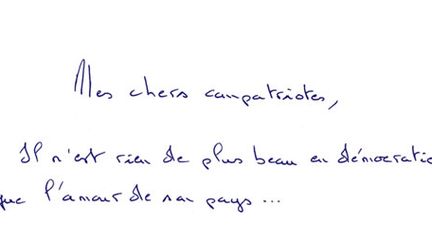 Mes chers compatriotes,
Il n'est rien de plus beau en démocratie
que l'amour de son pays...